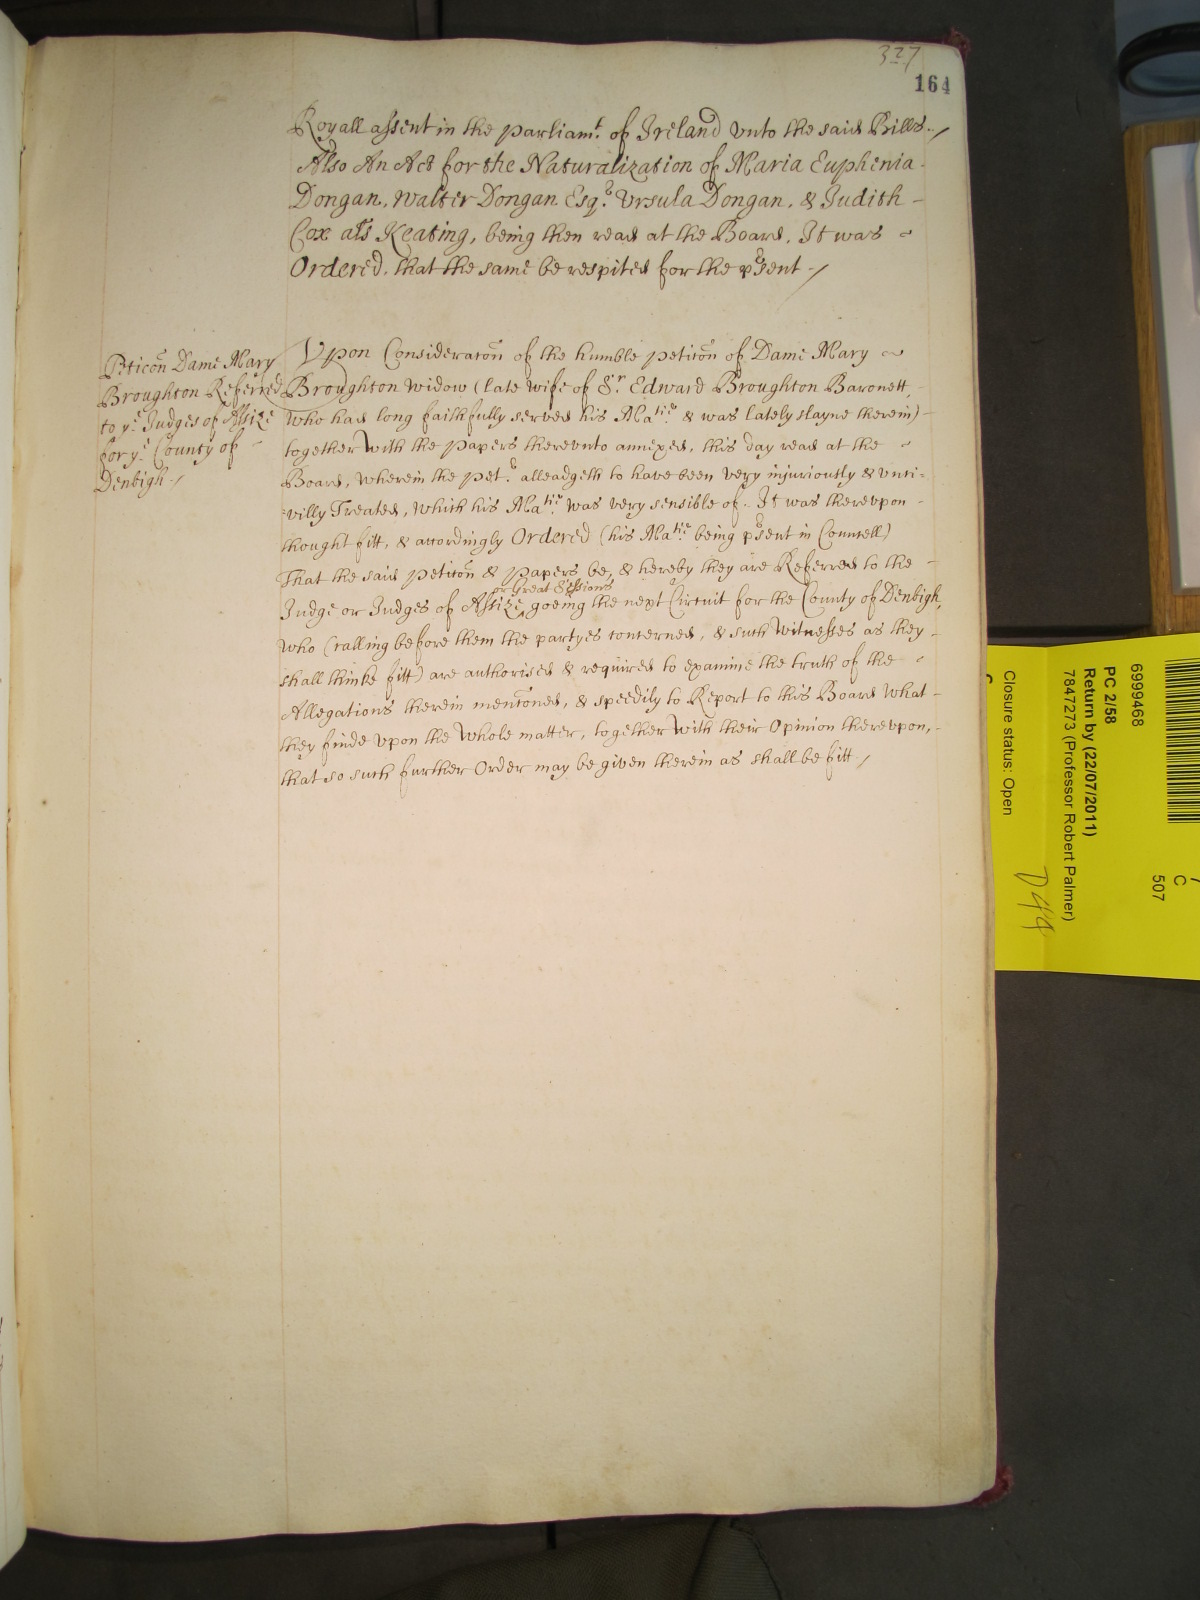 327
164
Royall assent in the parliamt. of Ireland vnto the said Bills./
Also An Act for the Naturalization of Maria Euphenia
Dongan, Walter Dongan Esqr. Vrsula Dongan, & Judith
Cox als Keating, being then read at the Board, It was
Ordered, that the same be respited for the prsent./
Peticōn Dame Mary
Broughton Referred
to ye Judges of Assize
for ye County of
Denbigh./
Vpon Consideracōn of the humble peticōn of Dame Mary
Broughton Widow (late wife of Sr. Edward Broughton Baronett,
who had long faithfully served his Matie. & was lately slayne therein)
together with the Papers therevnto annexed, this day read at the
Board, wherein the Petr. alleadgeth to have been very injuriously & vnci=
=villy Treated, which his Matie. was very sensible of. It was therevpon
thought fitt, & accordingly Ordered (his Matie. being prsent in Councell)
That the said peticōn & Papers be, & hereby they are Referred to the
or Great Sessions
Judge or Judges of Assize, goeing the next Circuit for the County of Denbigh,
who (calling before them the partyes concerned, & such witnesses as they
shall thinke fitt) are authorised & required to examine the truth of the
Allegations therein mencōned, & speedily to Report to this Board what
they finde vpon the whole matter, together with their Opinion therevpon,
that so such further Order may be given therein as shall be fitt./
6999468
PC 2/58
Return by (22/07/2011)
7847273 (Professor Robert Palmer)
Closure status: Open
C
507
D44